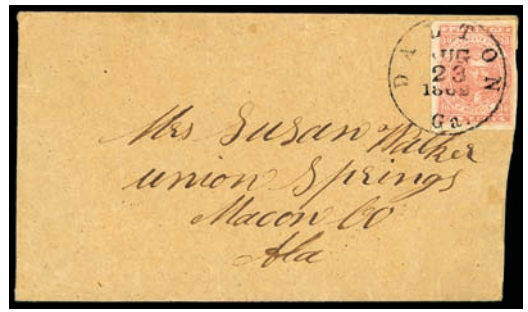 DALTON
AUG
23
1862
Ga.
Mrs Susan Walker
union Springs
Macon Co
Ala